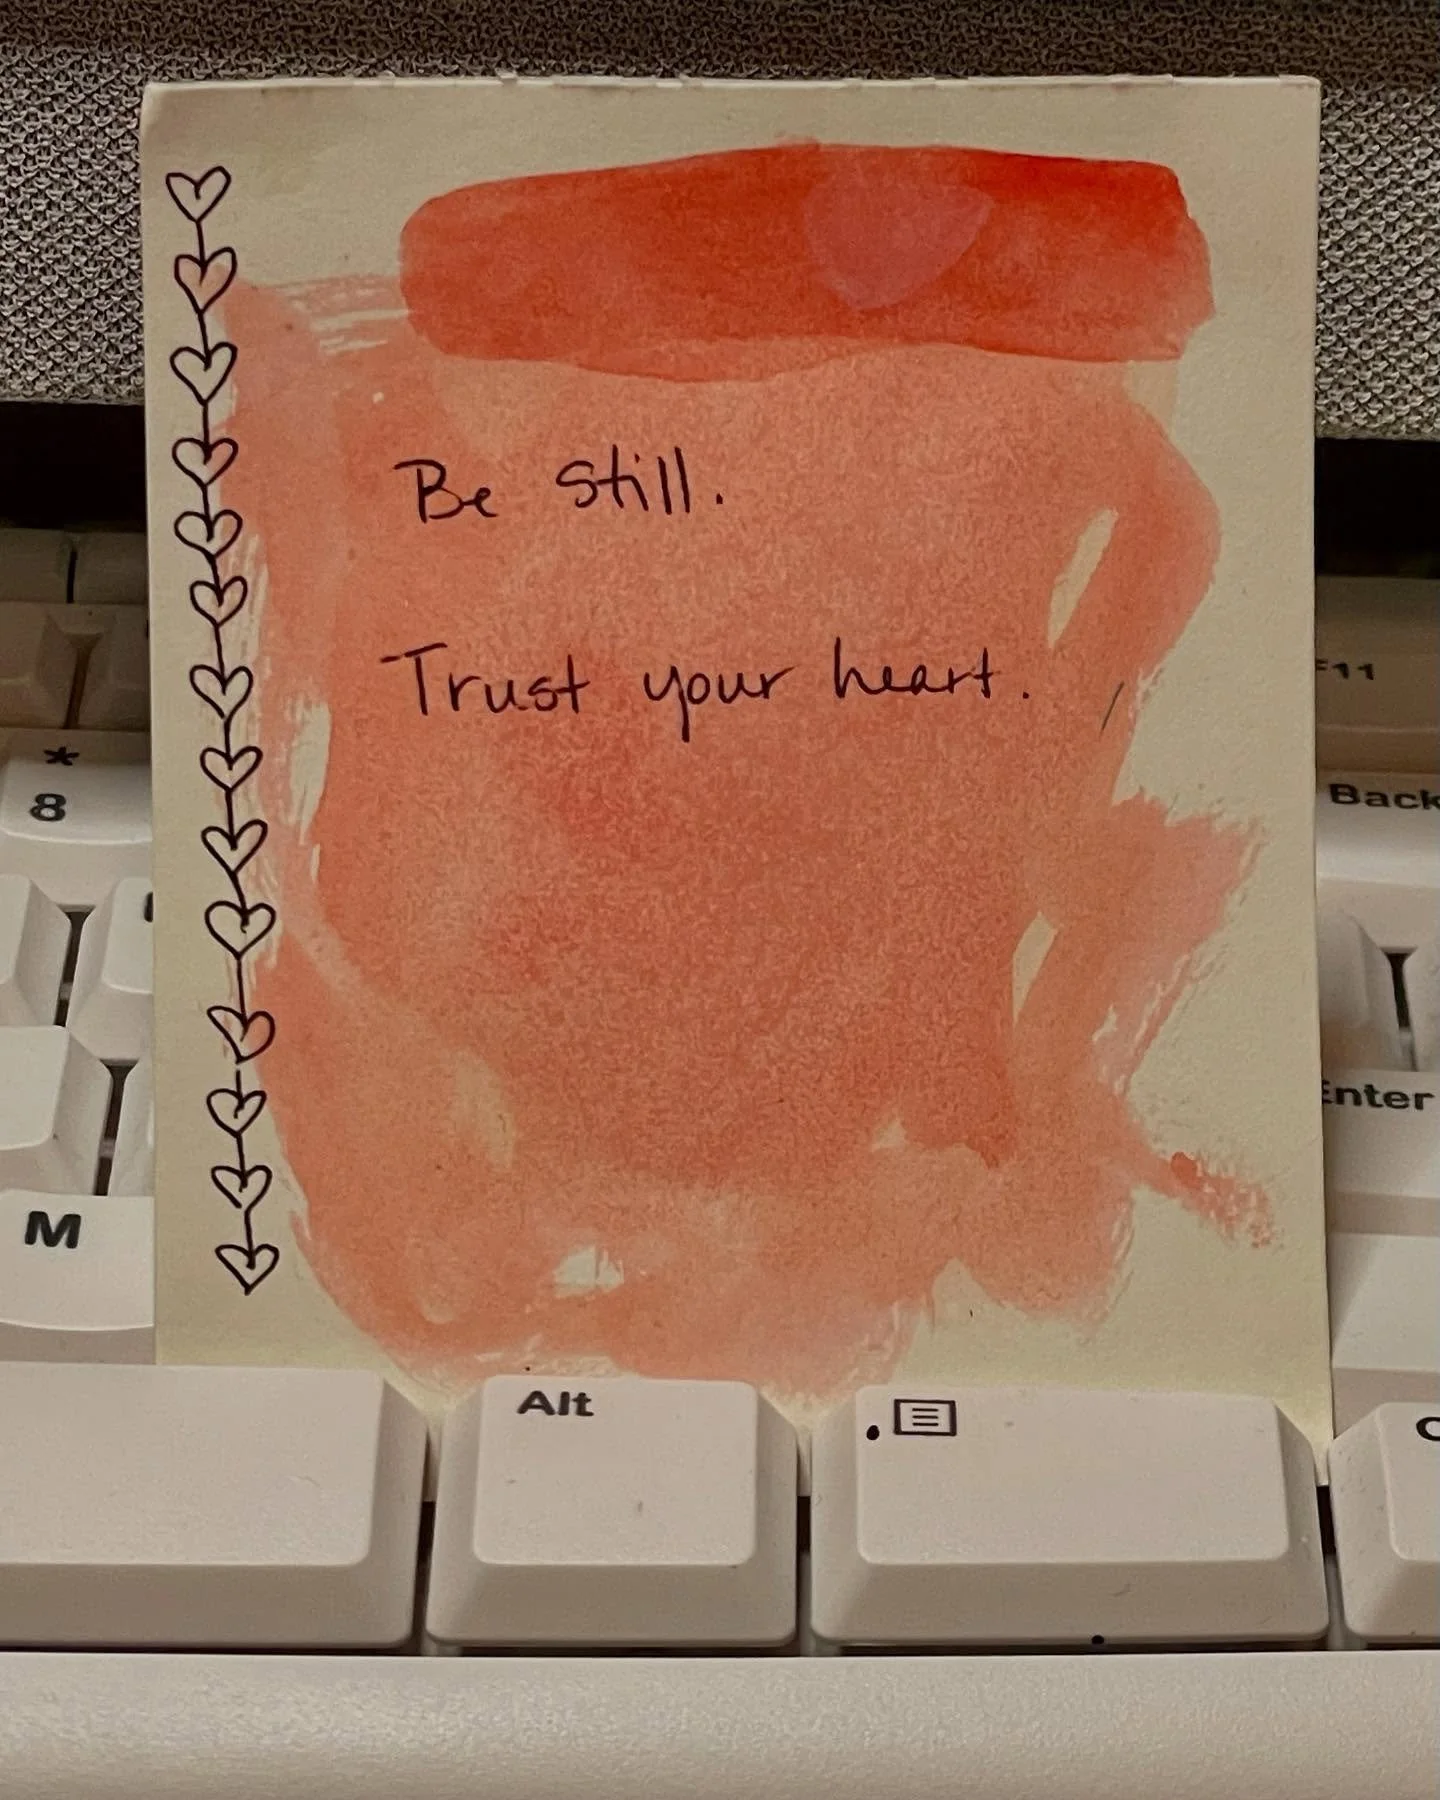 Be still.
Trust your heart.
F11
*
8
Back
Enter
M
Alt